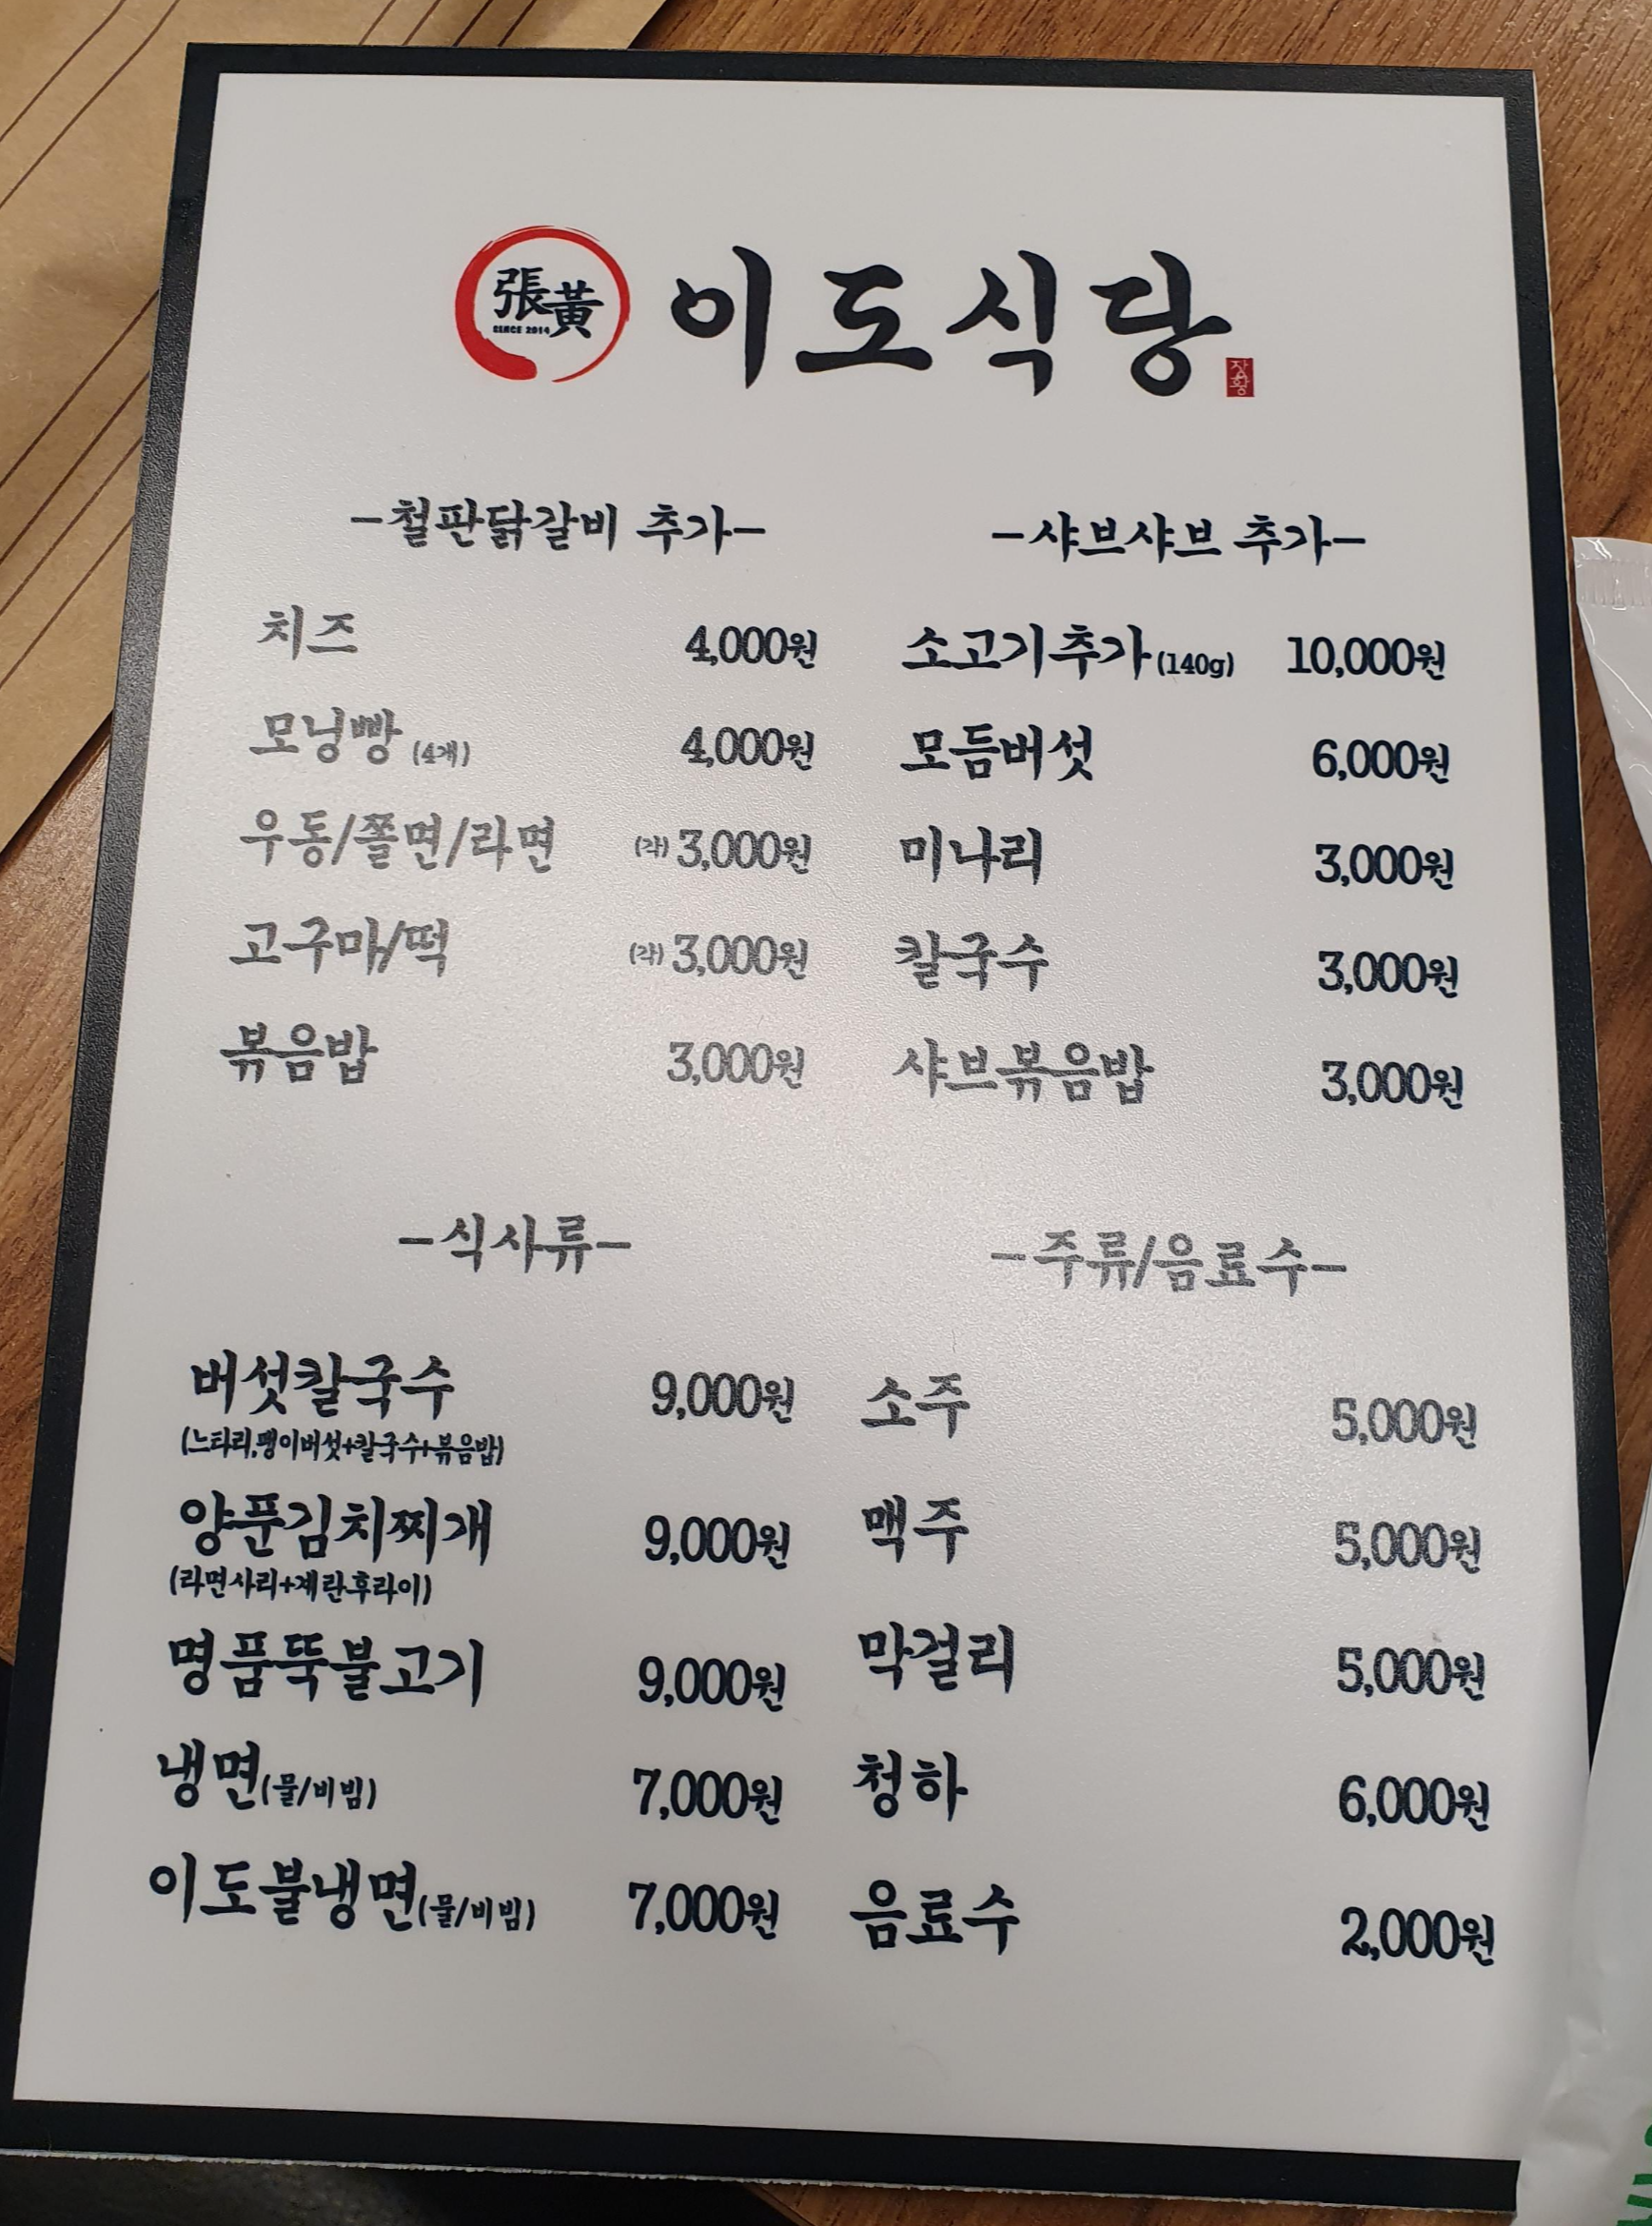 張黃
SINCE 2014
이도식당
장황
-철판닭갈비 추가-
치즈 4,000원
모닝빵 (4개) 4,000원
우동/쫄면/라면 (각) 3,000원
고구마/떡 (각) 3,000원
볶음밥 3,000원
-샤브샤브 추가-
소고기추가 (140g) 10,000원
모듬버섯 6,000원
미나리 3,000원
칼국수 3,000원
샤브볶음밥 3,000원
-식사류-
버섯칼국수 9,000원
(느타리,팽이버섯+칼국수+볶음밥)
양푼김치찌개 9,000원
(라면사리+계란후라이)
명품뚝불고기 9,000원
냉면(물/비빔) 7,000원
이도불냉면(물/비빔) 7,000원
-주류/음료수-
소주 5,000원
맥주 5,000원
막걸리 5,000원
청하 6,000원
음료수 2,000원